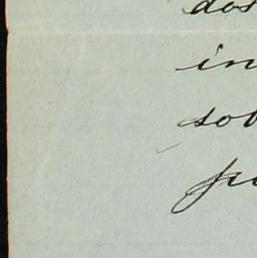 dos
in
sob
pu